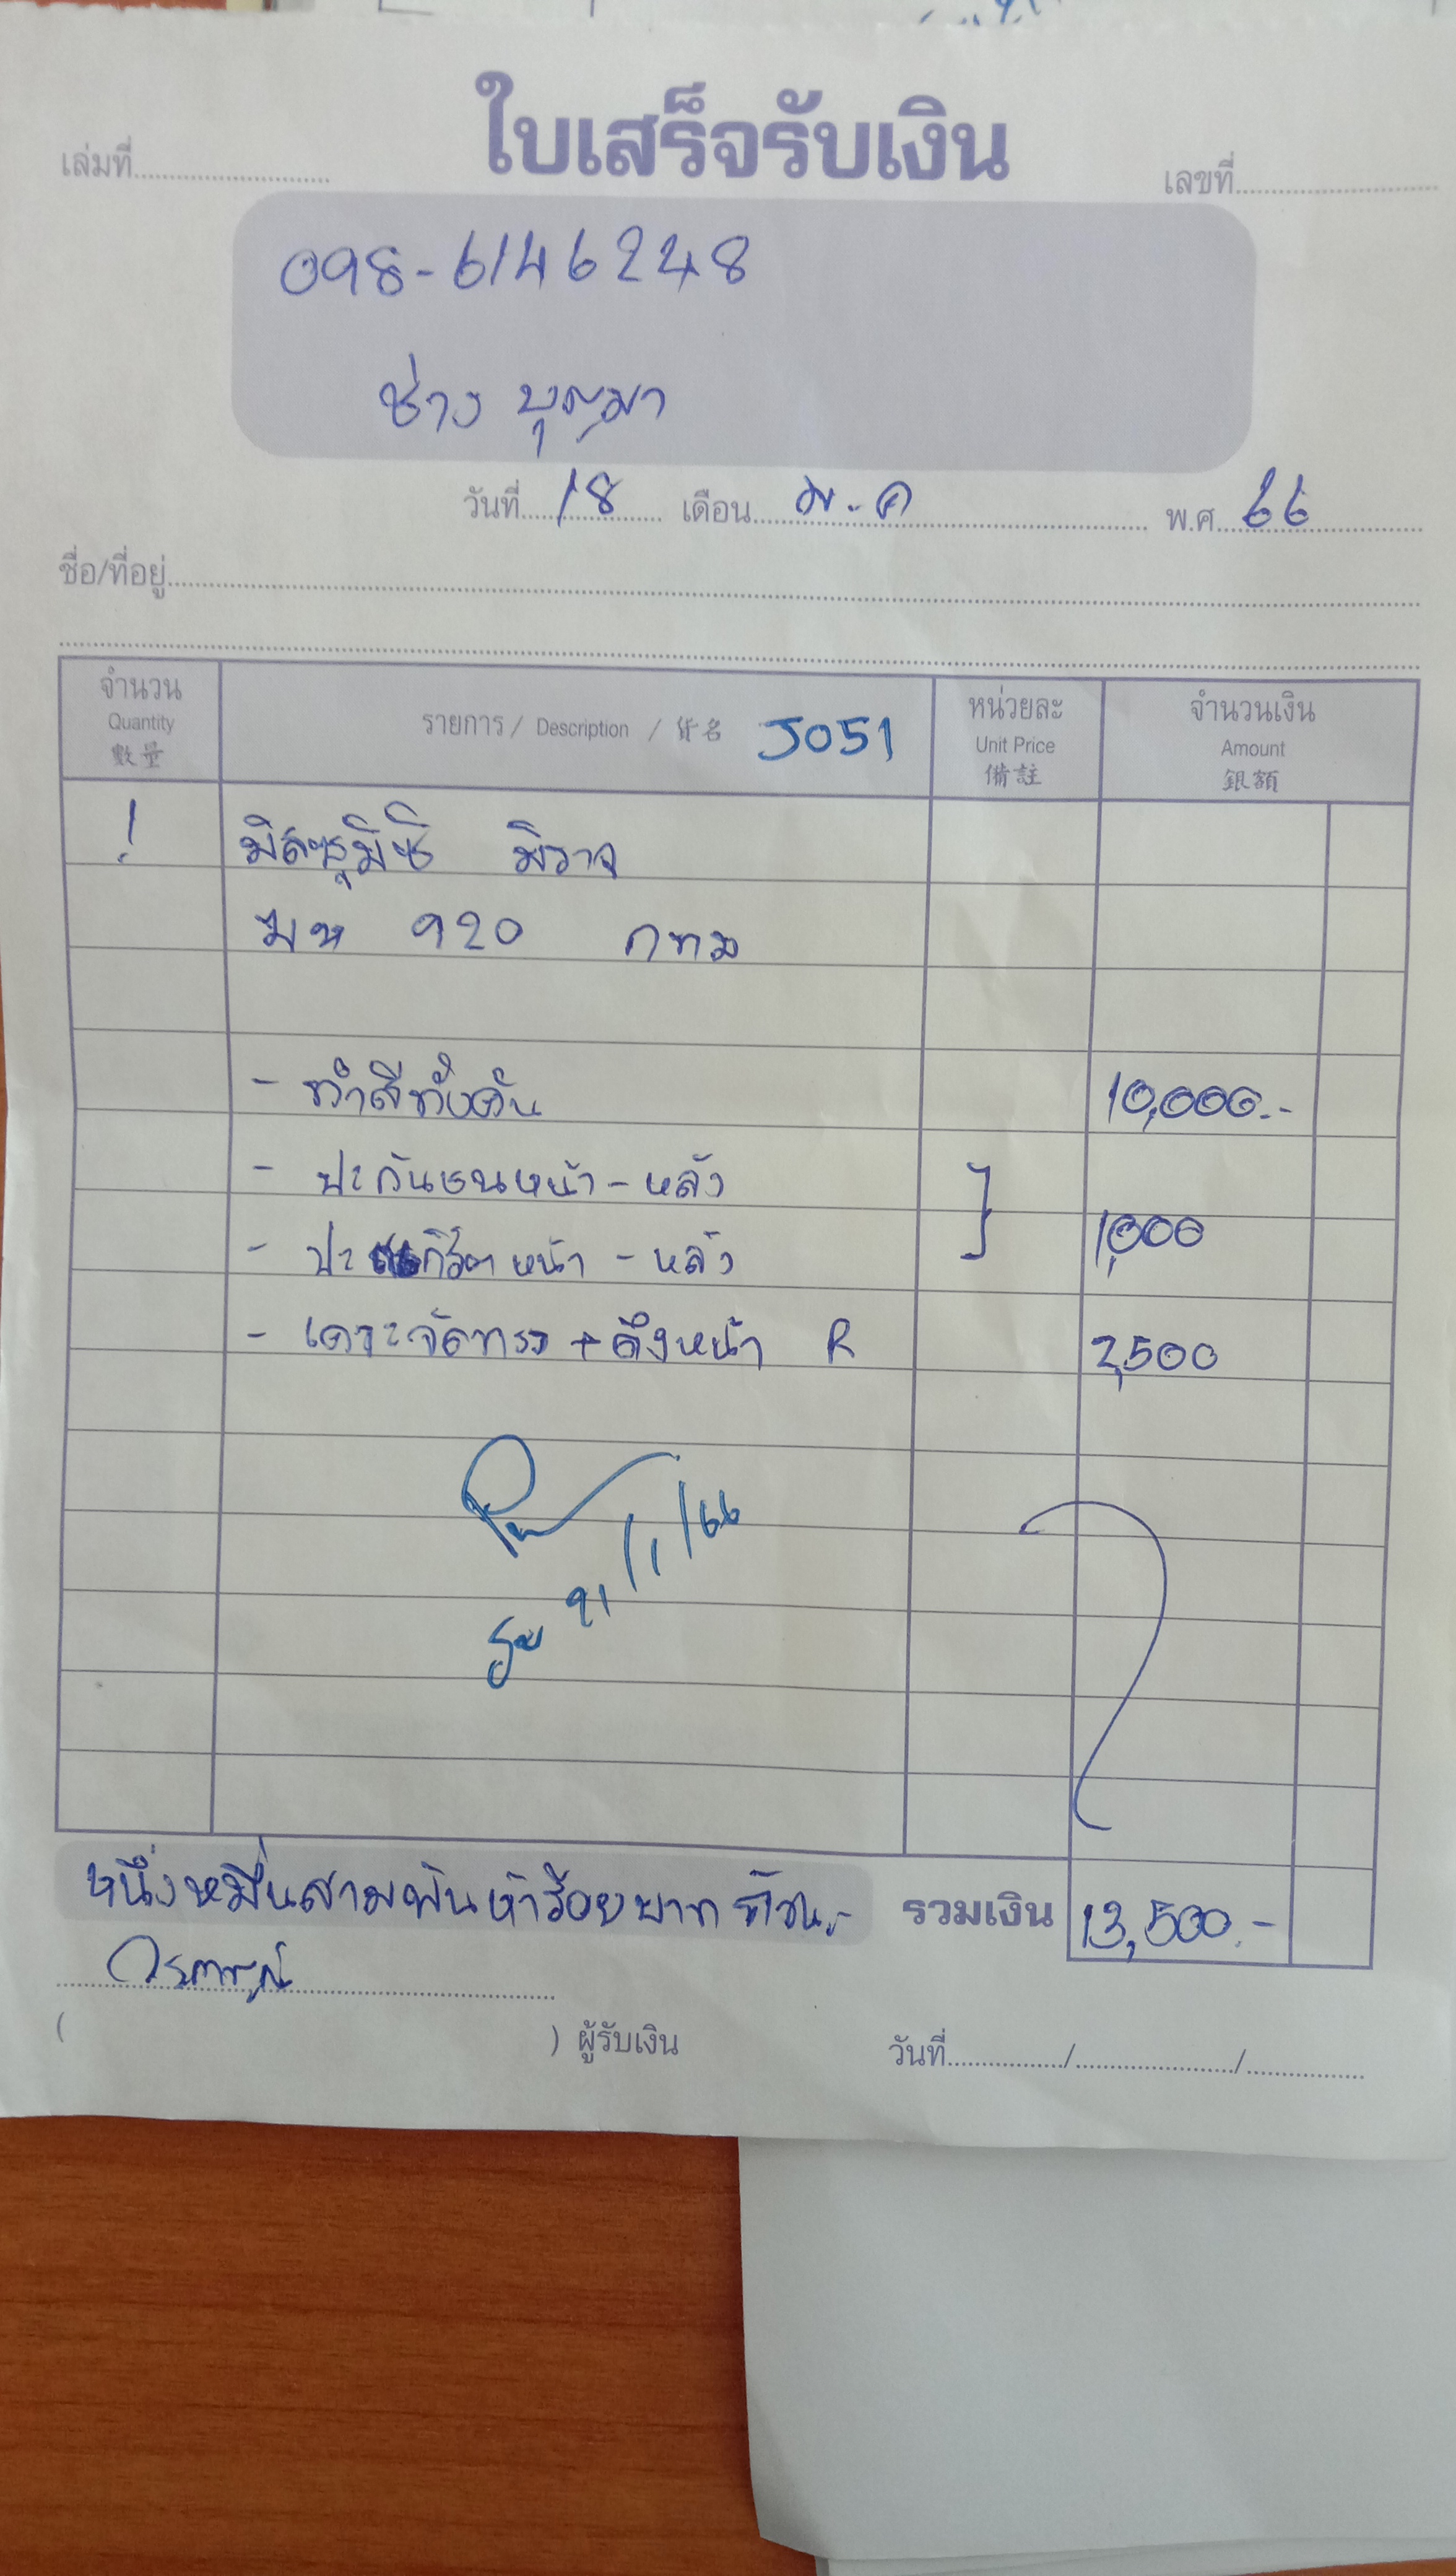 ใบเสร็จรับเงิน
เล่มที่
เลขที่
098-6146248
ช่าง บุญมา
วันที่ 18 เดือน ม.ค พ.ศ. 66
ชื่อ/ที่อยู่
จำนวน Quantity 數量
รายการ / Description / 貨名 J051
หน่วยละ Unit Price 備註
จำนวนเงิน Amount 銀額
1 มิตซูมิชิ มิราจ
920 กทม
- ทำสีทั้งคัน 10,000.-
- ปะกันชนหน้า - หลัง
- ปะ หน้า - หลัง } 1,000
- เคาะจัดทรง + ดึงหน้า R 2,500
21/1/66
หนึ่งหมื่นสามพันห้าร้อยบาทถ้วน.- รวมเงิน 13,500.-
( ) ผู้รับเงิน วันที่ / /